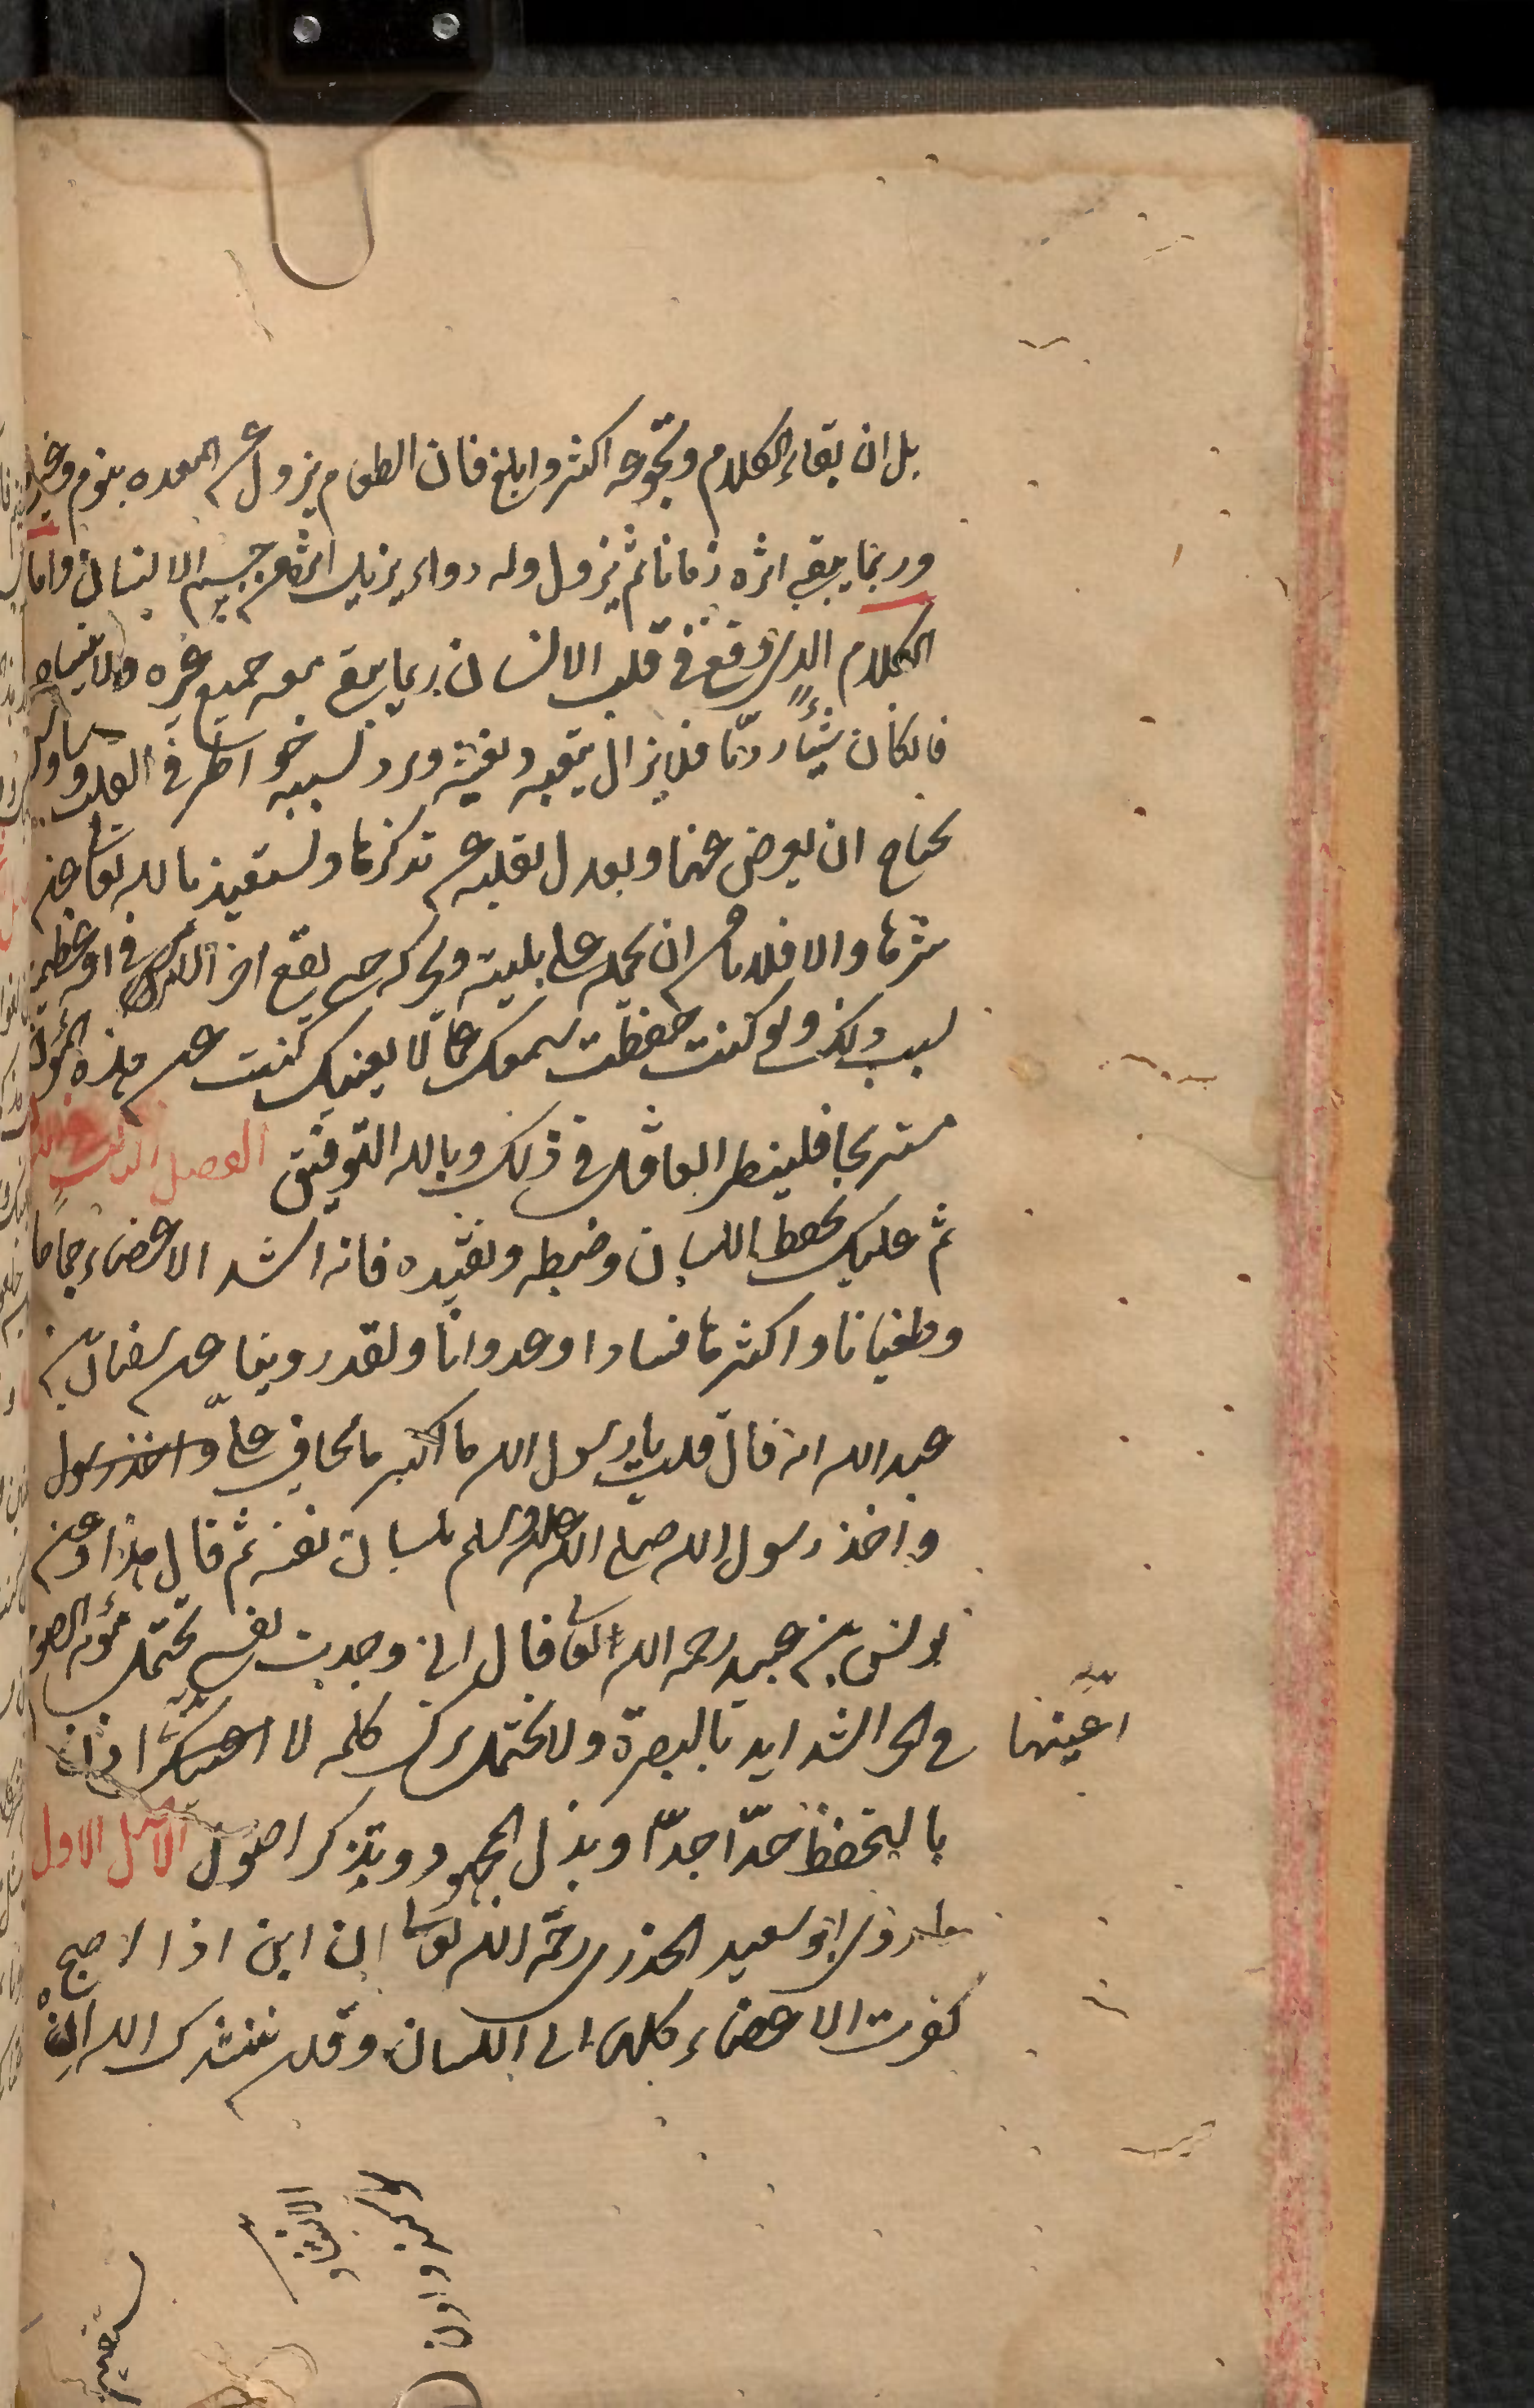 بل ان بقاء الكلام ونجوعه اكثر وابلغ فان الطعام يزول عن المعده بنوم وغيره
وربما يبقى اثره زمانا ثم يزول وله دواء يزيل اثره عن جسم الانسان واما
الكلام الذى وقع فى قلب الانسان ربما يبقى معه جميع عمره ولا ينساه
فانكان شيئا رديّا فلا يزال يتعبه ويعنيه ويرد بسببه خواطر فى القلب ووساوس
يحتاج ان يعرض عنها ويعدل بقلبه عن تذكرها ويستعيذ بالله تعالى من
شرها والا فلا يأمن ان تحمله على بلية وتحركه حتى يقع اخر الامر فى افة عظيمة
بسبب ذلك ولو كنت حفظت سمعك عما لا يعنيك كنت عن هذه المؤن
مستريحا فلينظر العاقل فى ذلك وبالله التوفيق الفصل الثالث
ثم عليك بحفظ اللسان وضبطه وتقييده فانه اشد الاعضاء جماحا
وطغيانا واكثرها فسادا وعدوانا ولقد روينا عن سفيان بن
عبد الله انه قال قلت يا رسول الله ما اكبر ما تخاف علىّ واخذ رسول
واخذ رسول الله صلى الله عليه وسلم بلسان نفسه ثم قال هذا وعن
يونس بن عبيد رحمه الله تعالى قال انى وجدت نفسى تحتمل مؤنة الصوم
فى الحر الشديد بالبصرة ولا تحتمل ترك كلمه لا
اعينها
بالتحفظ جدّا جدّا وبذل المجهود وتذكر اصول الاصل الاول
ما روى ابو سعيد الخدرى رحمه الله تعالى ان ابن ادم اذا اصبح
كفرت الاعضاء كلها الى اللسان وقلن ننشدك الله ان